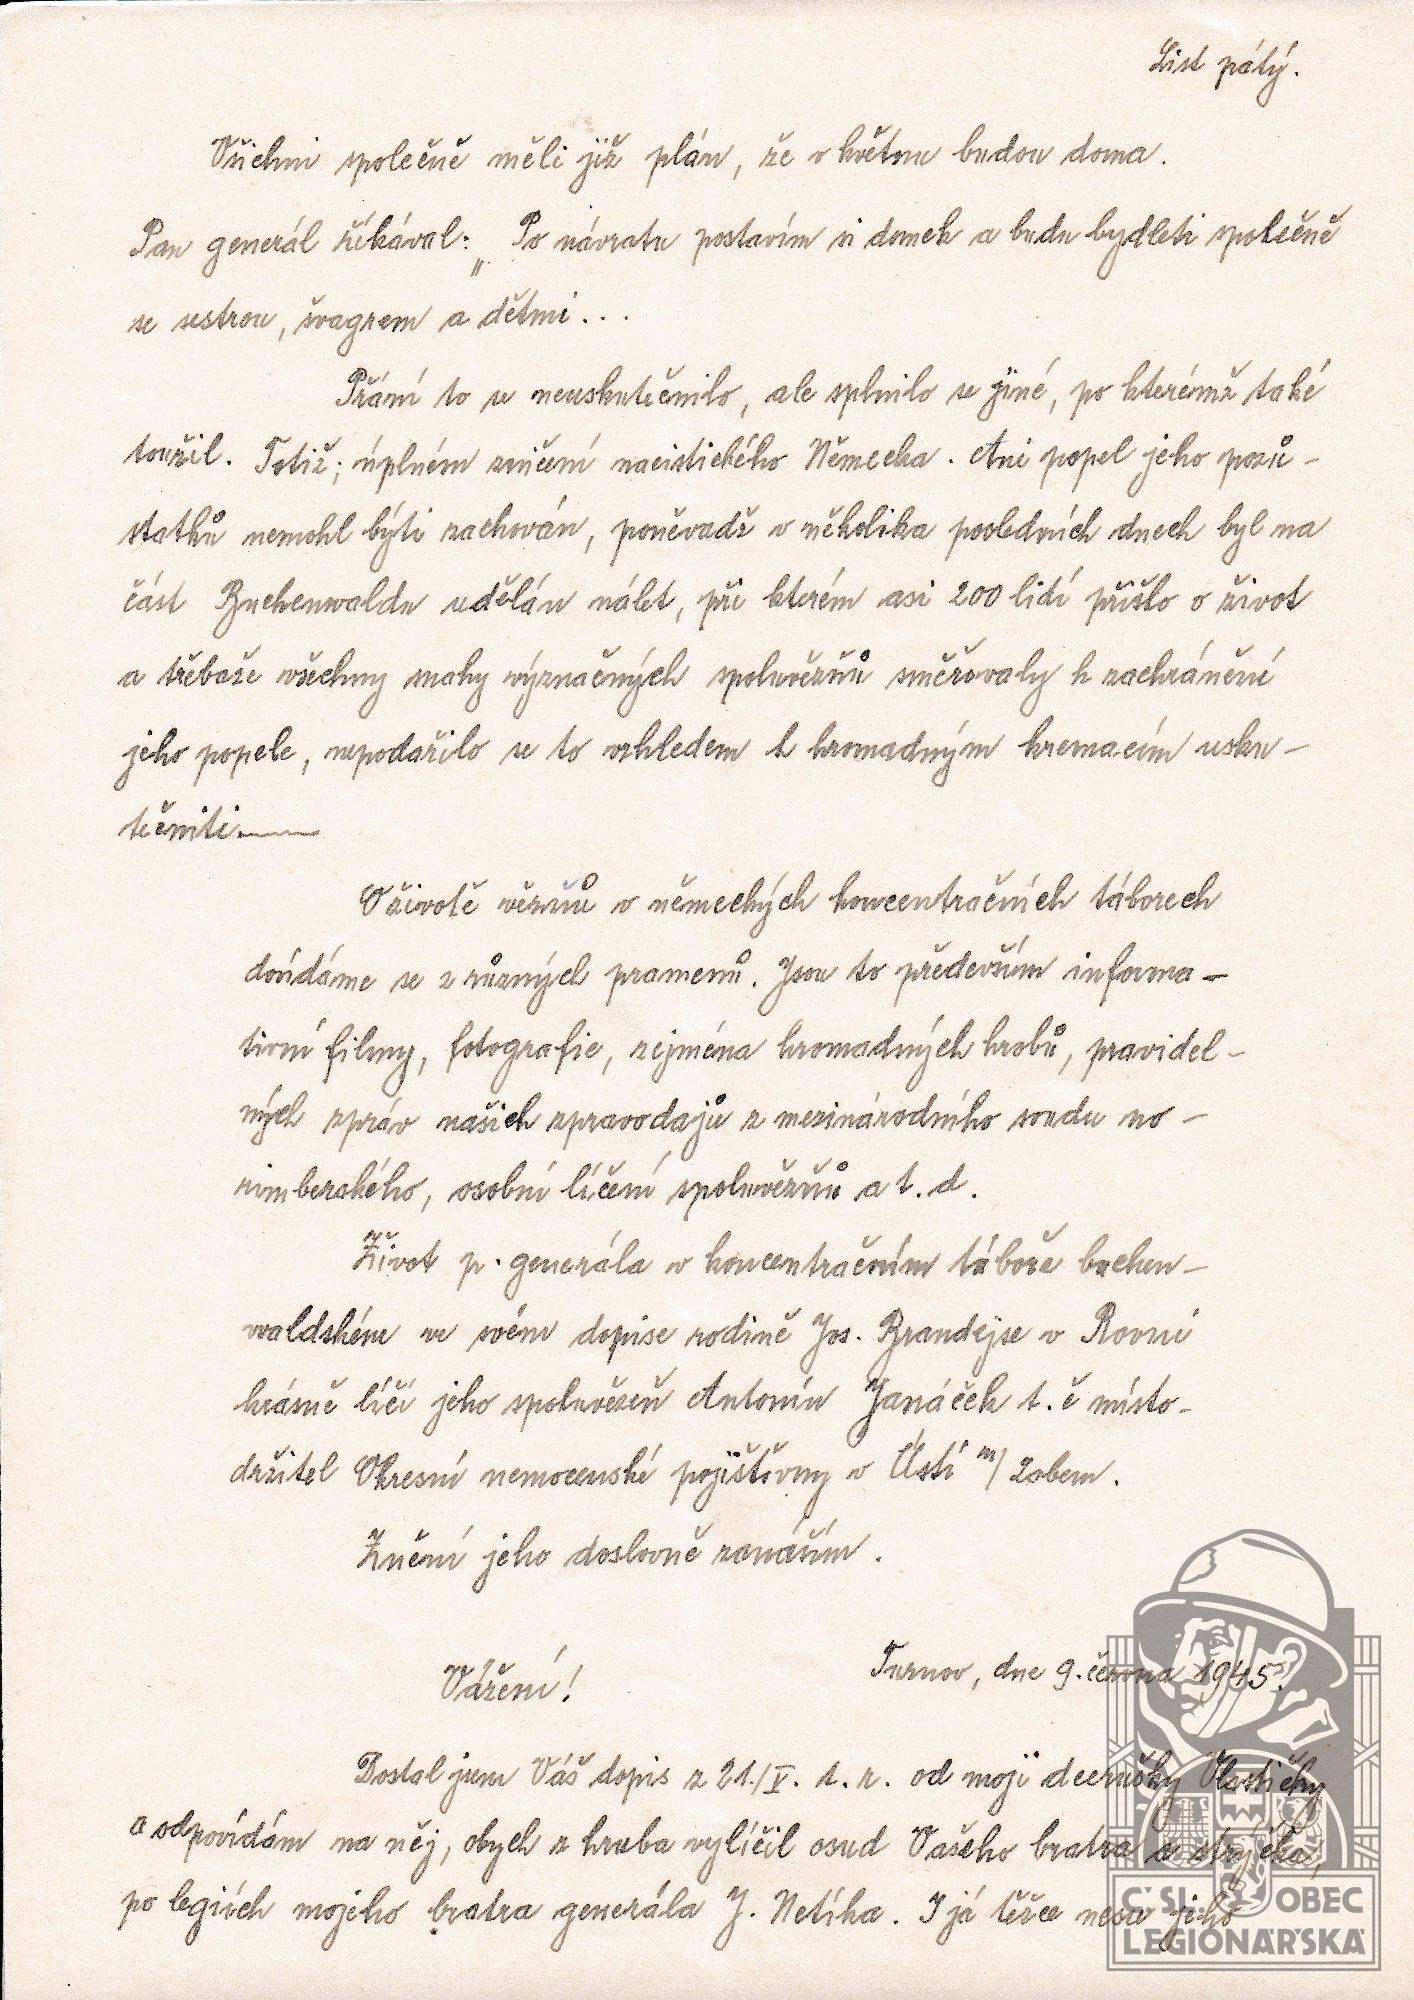 List pátý.
Všichni společně měli již plán, že v květnu budou doma.
Pan generál říkával: „Po návratu postavím si domek a budu bydleti společně
se sestrou, švagrem a dětmi...
Přání to se neuskutečnilo, ale splnilo se jiné, po kterémž také
toužil. Totiž; úplném zničení nacistického Německa. Ani popel jeho pozů-
statků nemohl býti zachován, poněvadž v několika posledních dnech byl na
část Buchenwaldu udělán nálet, při kterém asi 200 lidí přišlo o život
a třebaže všechny snahy význačných spoluvězňů směřovaly k zachránění
jeho popele, nepodařilo se to vzhledem k hromadným kremacím usku-
tečniti.
O životě vězňů v německých koncentračních táborech
dovídáme se z různých pramenů. Jsou to především informa-
tivní filmy, fotografie, zejména hromadných hrobů, pravidel-
ných zpráv našich zpravodajů z mezinárodního soudu no-
rimberského, osobní líčení spoluvězňů a t. d.
Život p. generála v koncentračním táboře buchen-
waldském ve svém dopise rodině Jos. Brandejse v Rovni
krásně líčí jeho spoluvězeň Antonín Janáček t. č místo-
držitel Okresní nemocenské pojišťovny v Ústí n/ Labem.
Znění jeho doslovně zanáším.
Turnov, dne 9. června 1945.
Vážení!
Dostal jsem Váš dopis z 21./V. t. r. od moji dcerušky Vlastičky
a odpovídám na něj, abych z hruba vylíčil osud Vašeho bratra a strýčka,
po legiích mojeho bratra generála J. Netíka. I já těžce nesu jeho
ČSL. OBEC
LEGIONÁŘSKÁ